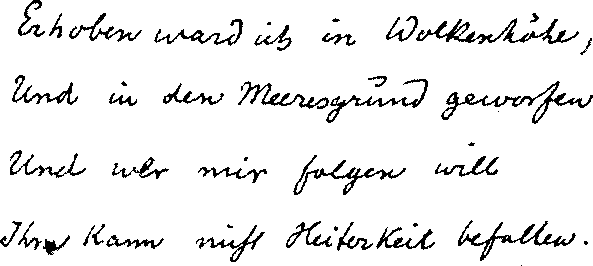 Erhoben ward ich in Wolkenhöhe,
Und in den Meeresgrund geworfen
Und wer mir folgen will
Ihm kann nicht Heiterkeit befallen.